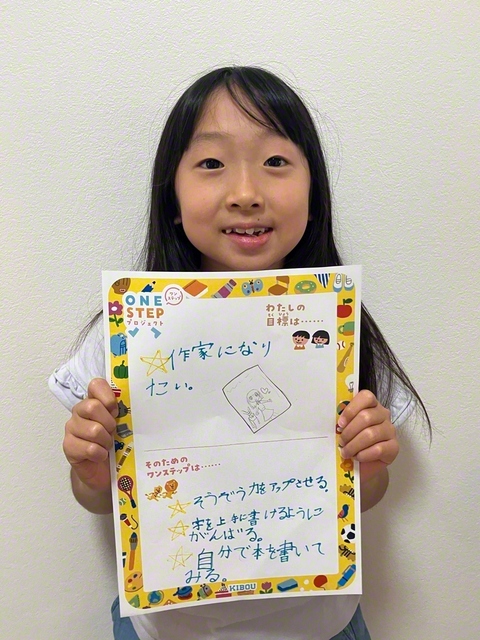 ONE
STEP
プロジェクト
ワン
ステップ
わたしの
もくひょう
目標は……
☆作家になり
たい。
そのための
ワンステップは……
☆そうぞう力をアップさせる。
☆本を上手に書けるように
がんばる。
☆自分で本を書いて
みる。
KIBOU